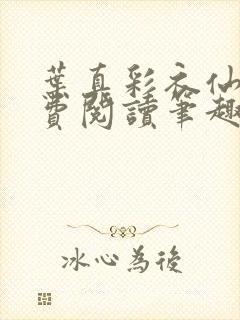 葉真彩衣仙
費閱讀筆趣
冰心為後